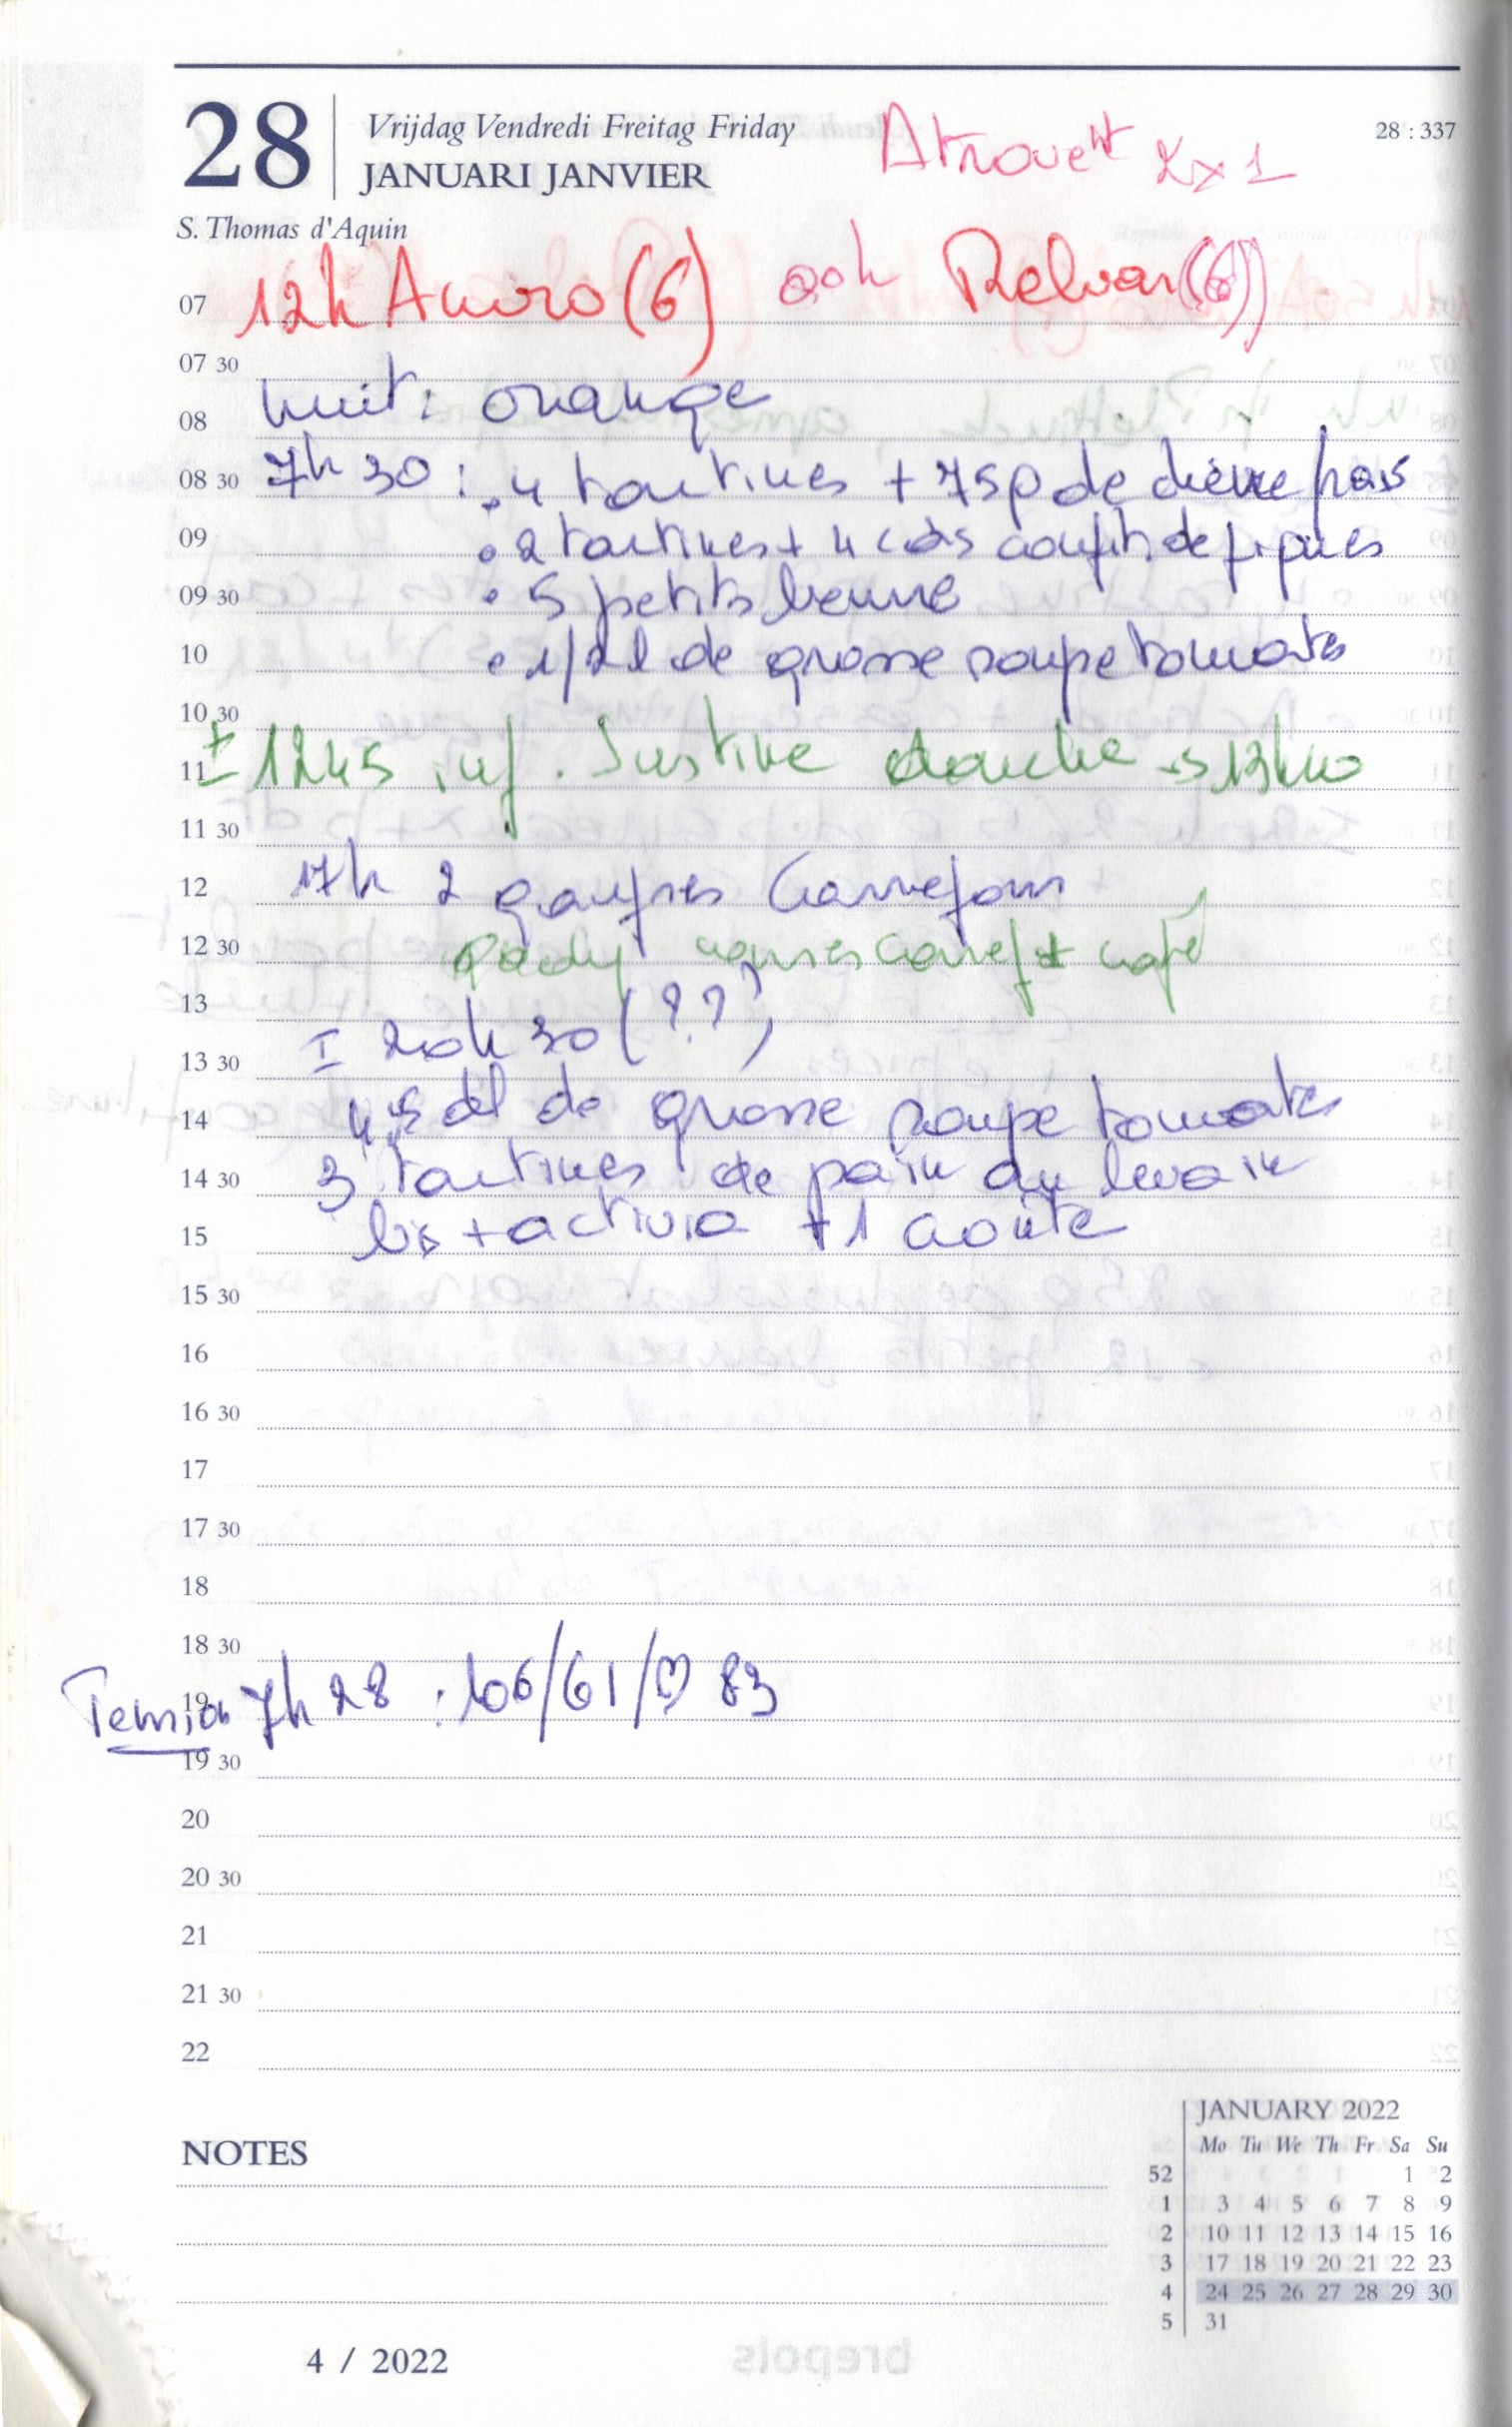 28 Vrijdag Vendredi Freitag Friday
JANUARI JANVIER
28 : 337
Atrovent 2x1
S. Thomas d'Aquin
07 12h Anoro (6) 20h Relvar (6)
07 30
08 nuit : orange
08 30 7h30 : • 4 tartines + 75g de chèvre frais
09 • 2 tartines + 4 càs confit de figues
09 30 • 5 petits beurre
10 • 1/2 l de grosse soupe tomates
10 30
11 ± 12h45 inf. Justine douche → 13h10
11 30
12 17h 2 gaufres Carrefour
12 30 Gady courses Carref + café
13 I 20h30 (??)
13 30
14 4,5 dl de grosse soupe tomates
14 30 3 tartines de pain au levain
15 bis + activia + 1 aoûte
15 30
16
16 30
17
17 30
18
18 30
19 Tension 7h28 : 106/61/♡ 83
19 30
20
20 30
21
21 30
22
NOTES
JANUARY 2022
Mo Tu We Th Fr Sa Su
52 1 2
1 3 4 5 6 7 8 9
2 10 11 12 13 14 15 16
3 17 18 19 20 21 22 23
4 24 25 26 27 28 29 30
5 31
4 / 2022